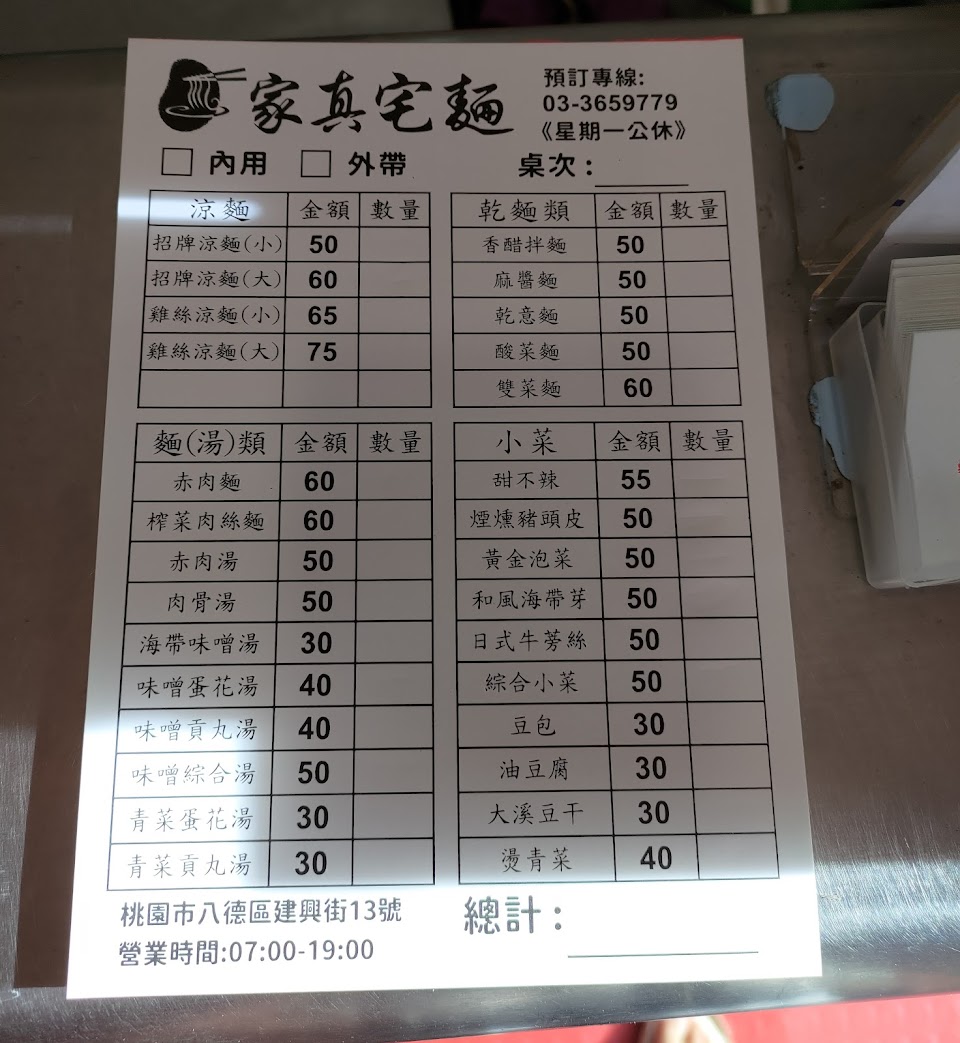 家真宅麵
預訂專線:
03-3659779
《星期一公休》
□ 內用 □ 外帶 桌次:
涼麵 金額 數量
招牌涼麵(小) 50
招牌涼麵(大) 60
雞絲涼麵(小) 65
雞絲涼麵(大) 75
乾麵類 金額 數量
香醋拌麵 50
麻醬麵 50
乾意麵 50
酸菜麵 50
雙菜麵 60
麵(湯)類 金額 數量
赤肉麵 60
榨菜肉絲麵 60
赤肉湯 50
肉骨湯 50
海帶味噌湯 30
味噌蛋花湯 40
味噌貢丸湯 40
味噌綜合湯 50
青菜蛋花湯 30
青菜貢丸湯 30
小菜 金額 數量
甜不辣 55
煙燻豬頭皮 50
黃金泡菜 50
和風海帶芽 50
日式牛蒡絲 50
綜合小菜 50
豆包 30
油豆腐 30
大溪豆干 30
燙青菜 40
桃園市八德區建興街13號
營業時間:07:00-19:00
總計: